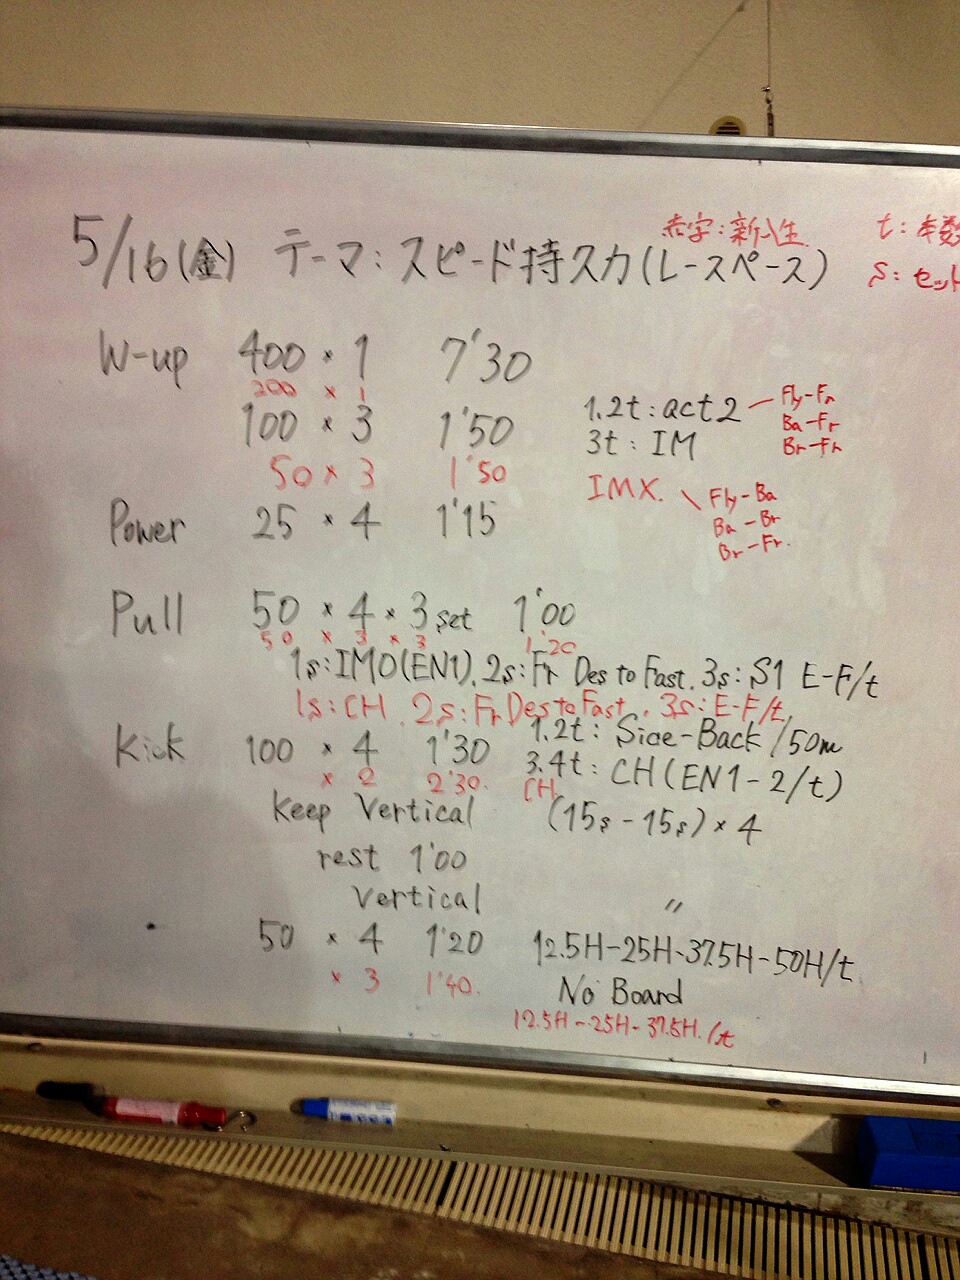 赤字:新入生 t:本数
5/16(金) テーマ:スピード持久力(レースペース) s:セット
W-up 400 × 1 7'30
200 × 1
100 × 3 1'50 1.2t:act2 — Fly-Fr
Ba-Fr
3t: IM Br-Fr
50 × 3 1'50 IMX. \ Fly-Ba
Ba-Br
Br-Fr.
Power 25 × 4 1'15
Pull 50 × 4 × 3 set 1'00
50 × 3 × 3 1'20
1s:IMO(EN1). 2s:Fr Des to Fast. 3s:S1 E-F/t
1s:CH. 2s:Fr Des to Fast. 3s:E-F/t.
Kick 100 × 4 1'30 1.2t: Side-Back/50m
× 2 2'30. 3.4t: CH(EN1-2/t)
CH
Keep Vertical (15s-15s)×4
rest 1'00
Vertical 〃
50 × 4 1'20 12.5H-25H-37.5H-50H/t
× 3 1'40. No Board
12.5H-25H-37.5H./t